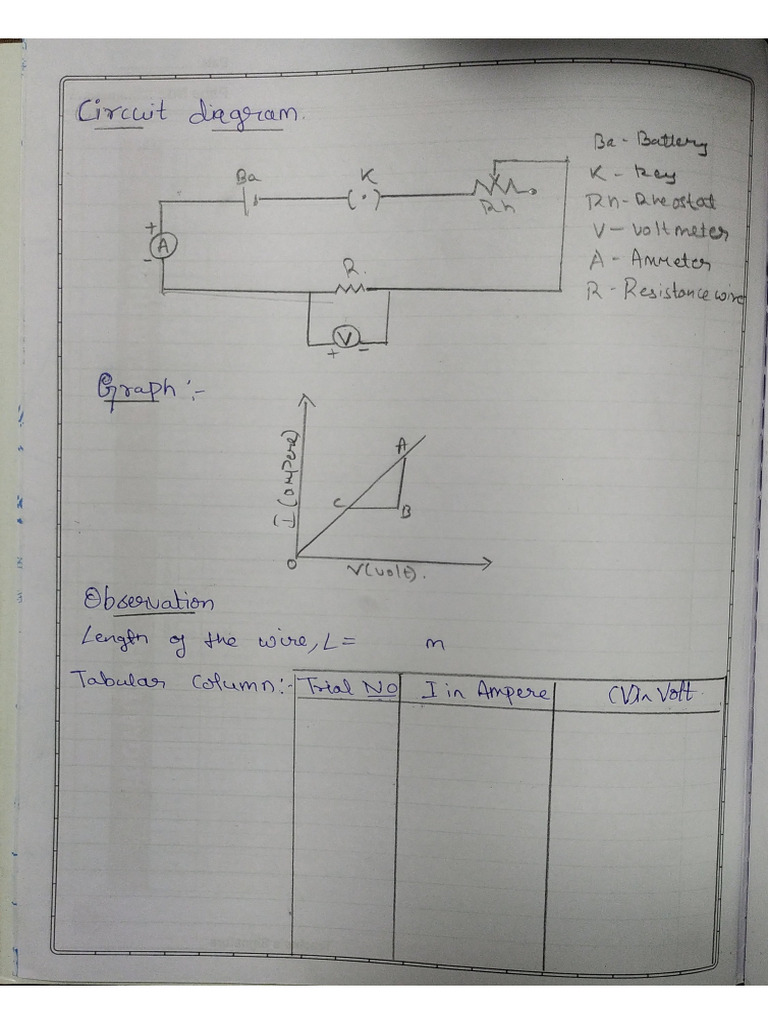 Circuit diagram.
Ba - Battery
K - Key
Rh - Rheostat
V - voltmeter
A - Ammeter
R - Resistance wire
Ba
K
Rh
+
A
-
R.
V
+ -
Graph :-
I (ampere)
A
C
B
O
V(volt).
Observation
Length of the wire, L = m
Tabular Column:- Trial No I in Ampere (V)in Volt